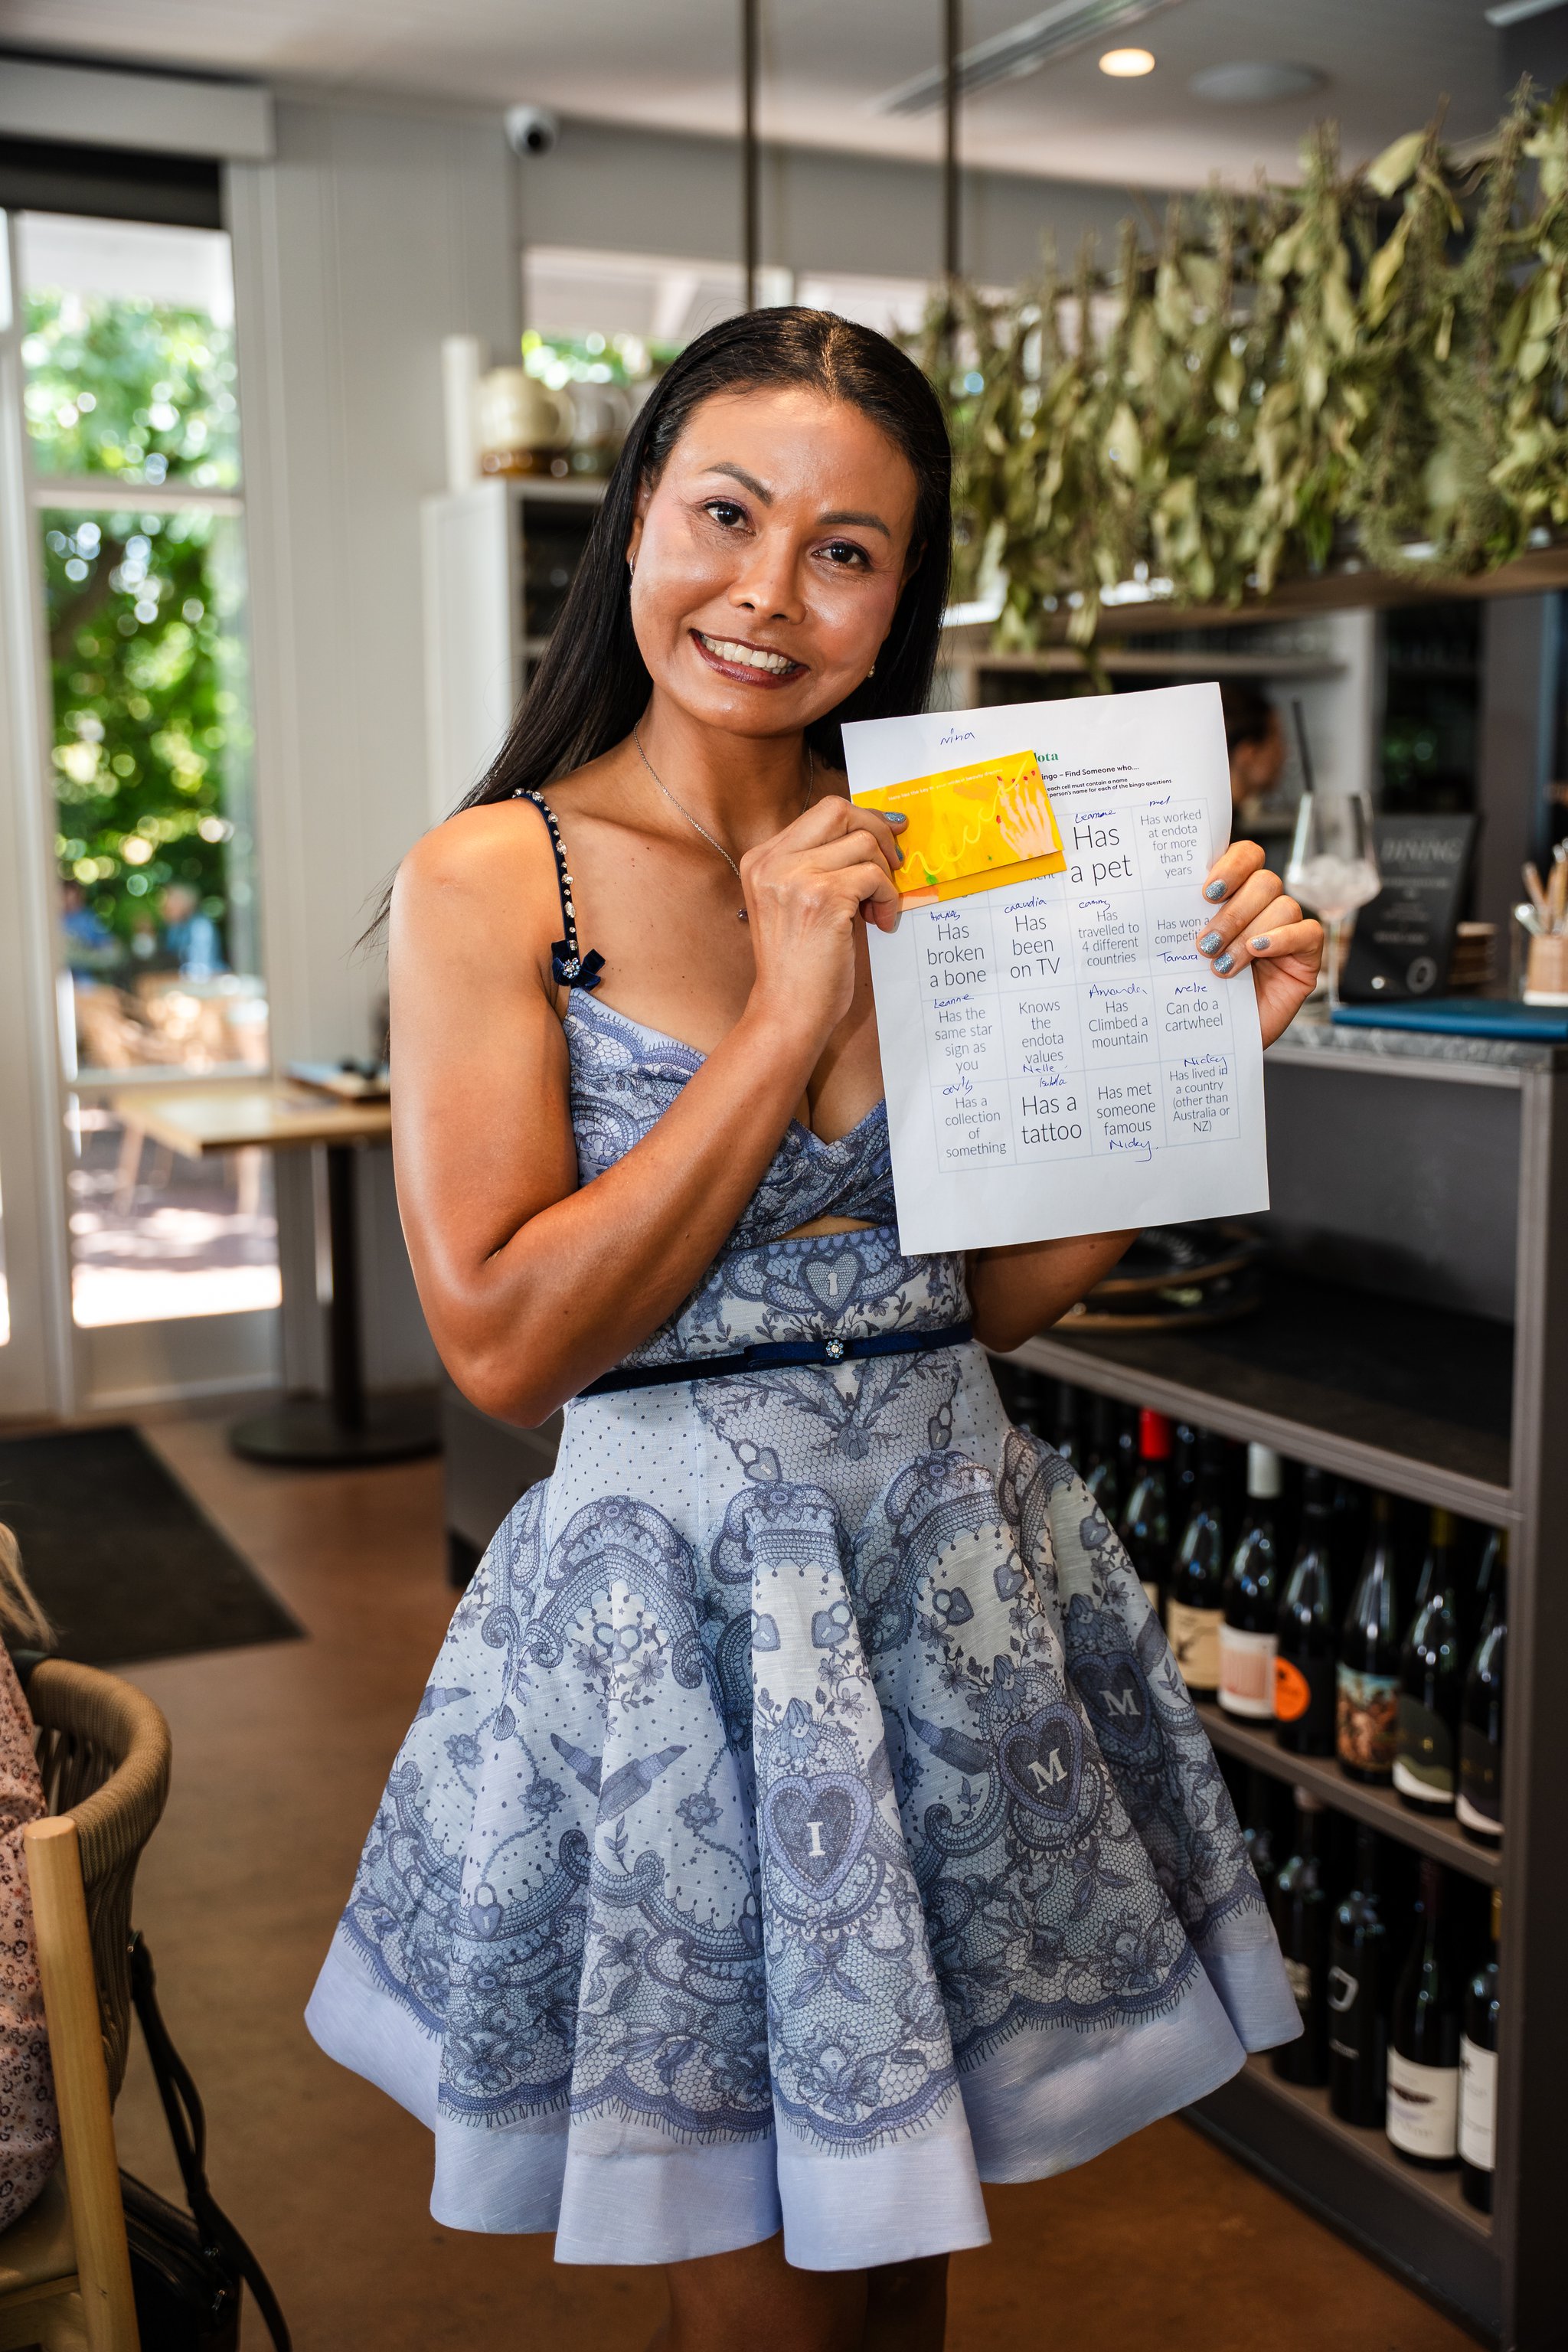 Nina
ota
ingo – Find Someone who...
each cell must contain a name
person's name for each of the bingo questions
Leanne
Has
a pet
mel
Has worked
at endota
for more
than 5
years
Has
broken
a bone
claudia
Has
been
on TV
Has
travelled to
4 different
countries
Has won a
competiti
Tamara
Leanne
Has the
same star
sign as
you
Knows
the
endota
values
Nelle
Amanda
Has
Climbed a
mountain
Nelle
Can do a
cartwheel
Has a
collection
of
something
Isabella
Has a
tattoo
Has met
someone
famous
Nicky
Nicky
Has lived in
a country
(other than
Australia or
NZ)
DINING
I
I
M
M